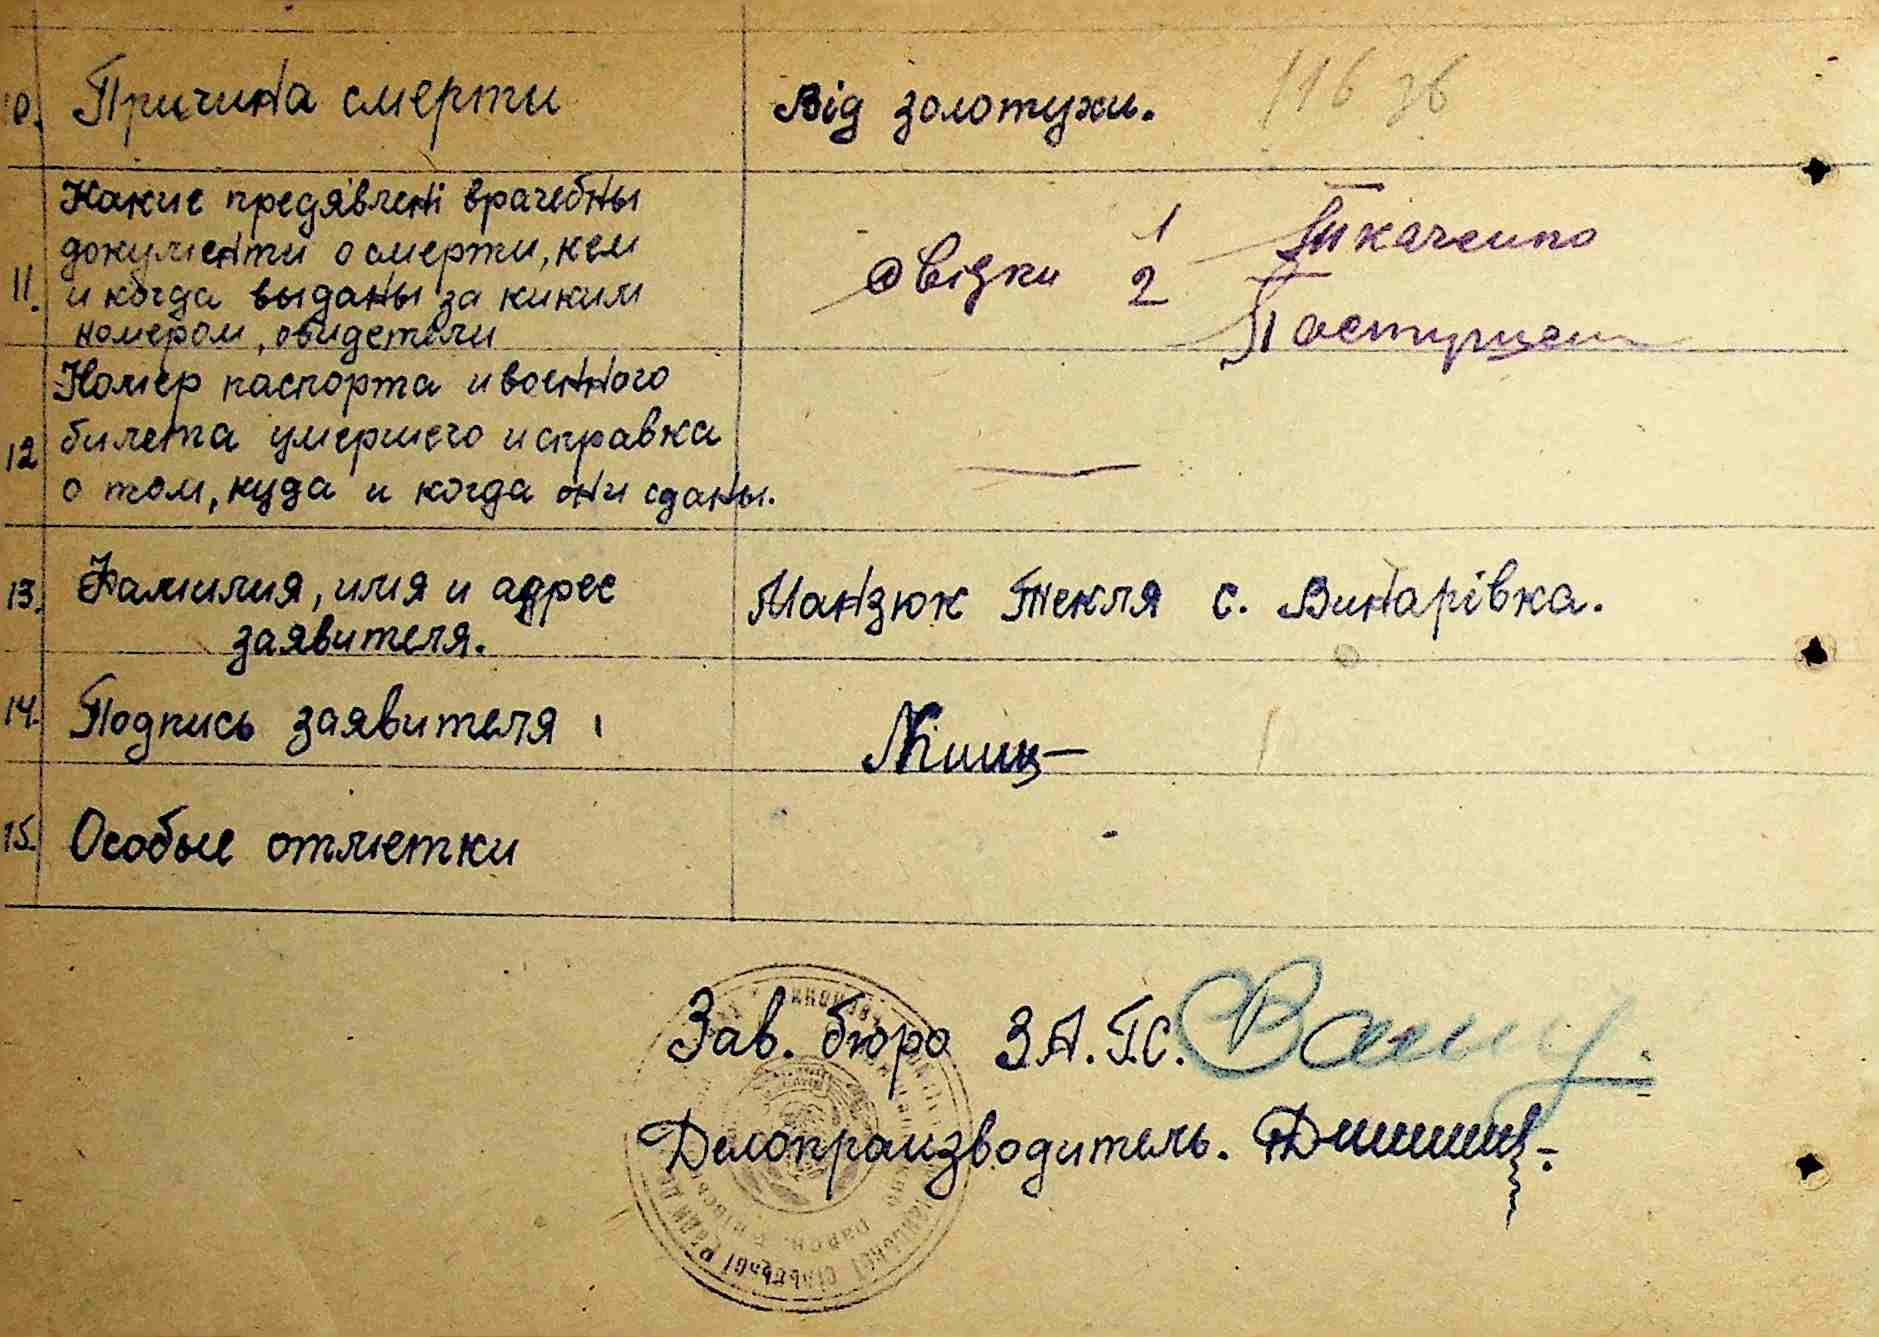 116 зв
10. Причина смерти Від золотухи.
Какие предявлені врачебны
документи о смерти, кем
11. и когда выданы за киким
номером, свидетели
Свідки 1 Ткаченко
2
Номер паспорта и военного
12 билета умершего и справка
о том, куда и когда они сданы.
13. Фамилия, имя и адрес Манзюк Текля с. Винарівка.
заявителя.
14. Подпись заявителя
15. Особые отметки
Зав. бюро З.А.Г.С.
Делопроизводитель.